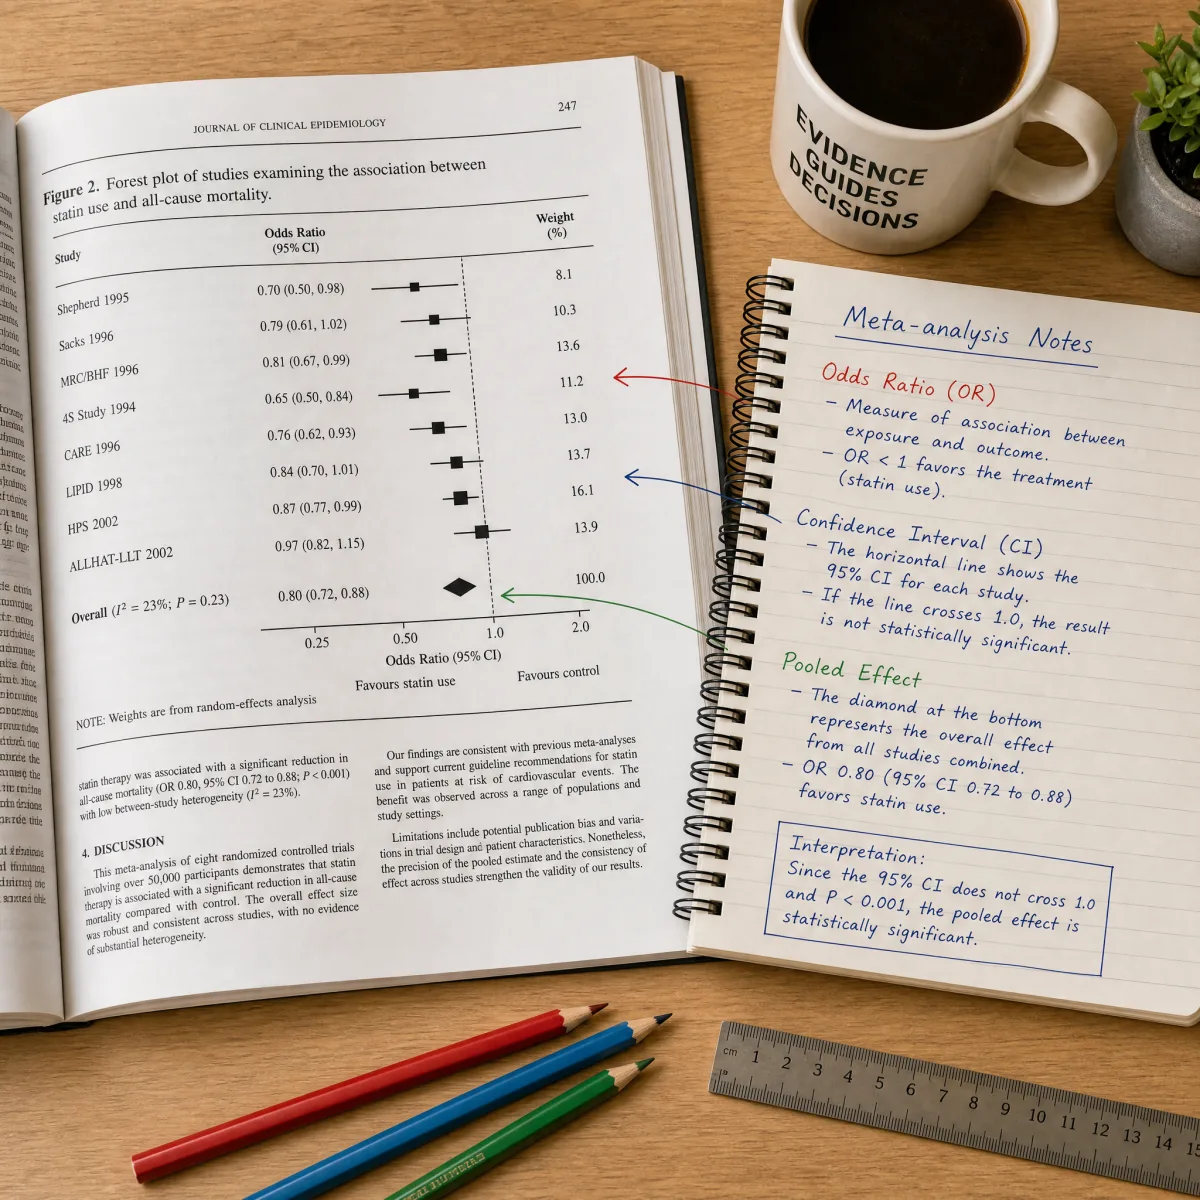 247
JOURNAL OF CLINICAL EPIDEMIOLOGY
Figure 2. Forest plot of studies examining the association between
statin use and all-cause mortality.
Study Odds Ratio (95% CI) Weight (%)
Shepherd 1995 0.70 (0.50, 0.98) 8.1
Sacks 1996 0.79 (0.61, 1.02) 10.3
MRC/BHF 1996 0.81 (0.67, 0.99) 13.6
4S Study 1994 0.65 (0.50, 0.84) 11.2
CARE 1996 0.76 (0.62, 0.93) 13.0
LIPID 1998 0.84 (0.70, 1.01) 13.7
HPS 2002 0.87 (0.77, 0.99) 16.1
ALLHAT-LLT 2002 0.97 (0.82, 1.15) 13.9
Overall (I² = 23%; P = 0.23) 0.80 (0.72, 0.88) 100.0
0.25 0.50 1.0 2.0
Odds Ratio (95% CI)
Favours statin use Favours control
NOTE: Weights are from random-effects analysis
statin therapy was associated with a significant reduction in
all-cause mortality (OR 0.80, 95% CI 0.72 to 0.88; P < 0.001)
with low between-study heterogeneity (I² = 23%).
4. DISCUSSION
This meta-analysis of eight randomized controlled trials
involving over 50,000 participants demonstrates that statin
therapy is associated with a significant reduction in all-cause
mortality compared with control. The overall effect size
was robust and consistent across studies, with no evidence
of substantial heterogeneity.
Our findings are consistent with previous meta-analyses
and support current guideline recommendations for statin
use in patients at risk of cardiovascular events. The
benefit was observed across a range of populations and
study settings.
Limitations include potential publication bias and varia-
tions in trial design and patient characteristics. Nonetheless,
the precision of the pooled estimate and the consistency of
effect across studies strengthen the validity of our results.
EVIDENCE
GUIDES
DECISIONS
Meta-analysis Notes
Odds Ratio (OR)
– Measure of association between
exposure and outcome.
– OR < 1 favors the treatment
(statin use).
Confidence Interval (CI)
– The horizontal line shows the
95% CI for each study.
– If the line crosses 1.0, the result
is not statistically significant.
Pooled Effect
– The diamond at the bottom
represents the overall effect
from all studies combined.
– OR 0.80 (95% CI 0.72 to 0.88)
favors statin use.
Interpretation:
Since the 95% CI does not cross 1.0
and P < 0.001, the pooled effect is
statistically significant.
cm 1 2 3 4 5 6 7 8 9 10 11 12 13 14 15